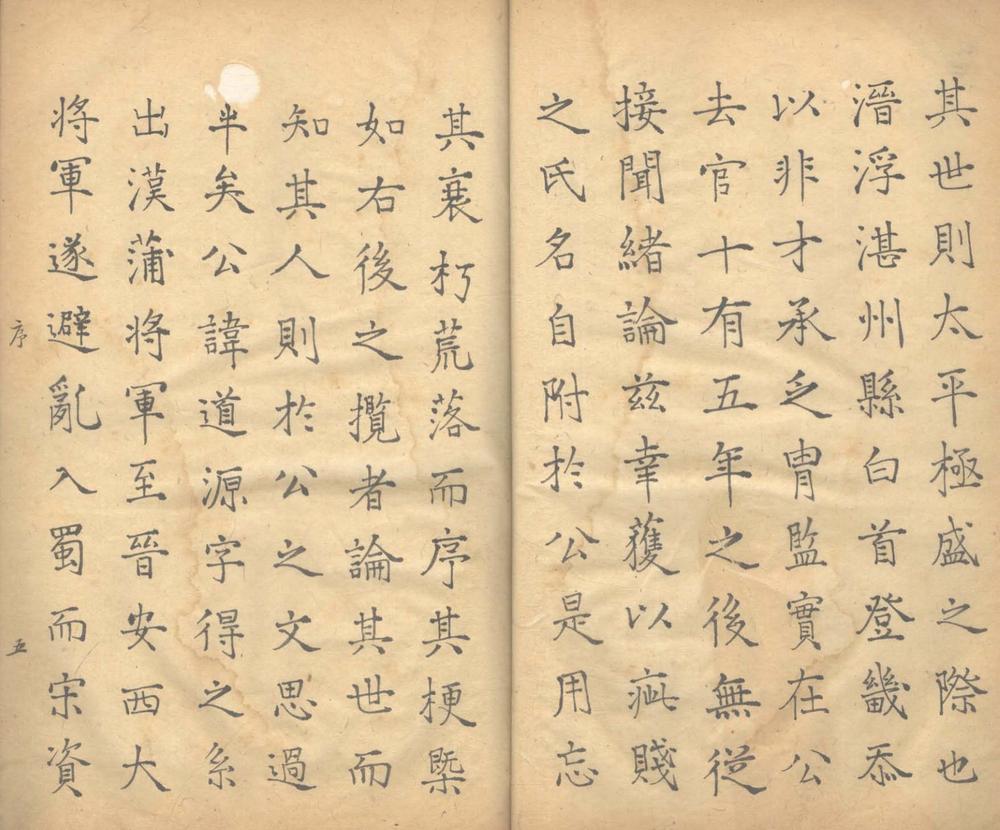 其世則太平極盛之際也
溍浮湛州縣白首登畿忝
以非才承乏冑監實在公
去官十有五年之後無從
接聞緒論兹幸獲以疵賤
之氏名自附於公是用忘
其衰朽荒落而序其梗槩
如右後之攬者論其世而
知其人則於公之文思過
半矣公諱道源字得之系
出漢蒲將軍至晉安西大
將軍遂避亂入蜀而宋資
序
五